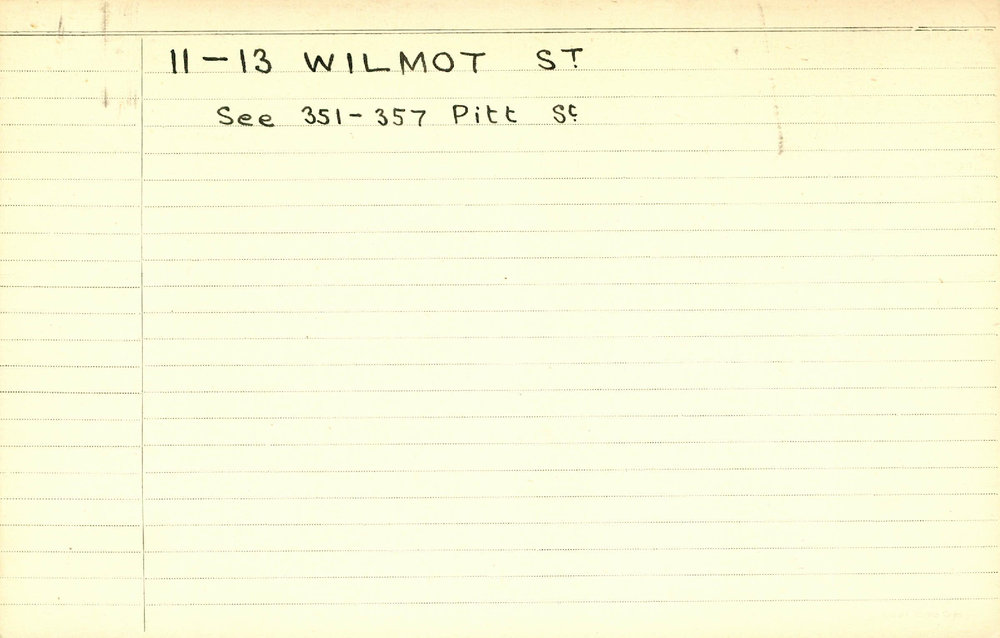 11-13 WILMOT ST
See 351-357 Pitt St